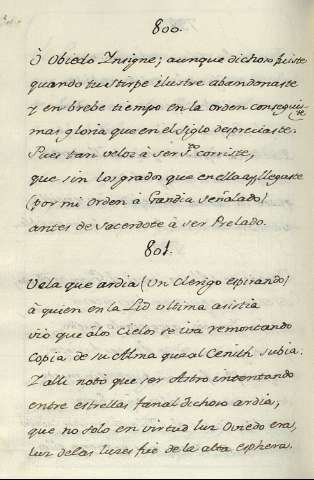 800.
O Obiedo Insigne; aunque dichoso fuiste
quando tu Stirpe ilustre abandonaste
y en brebe tiempo en la orden conseguiste
mas gloria que en el siglo despreciaste.
Pues tan veloz à ser Sto corriste,
que sin los grados que en ella ay, llegaste
(por mi orden à Gandia señalado)
antes de sacerdote à ser Prelado.
801.
Vela que ardia (un Clerigo espirando)
à quien en la Lid ultima asistia
vio que àlos Cielos se iva remontando
copia de su Alma que al Cenith subia.
I alli notò que ser Astro intentando
entre estrellas fanal dichoso ardia;
que no solo en virtud luz Oviedo era,
luz delas luzes fue de la alta esphera.